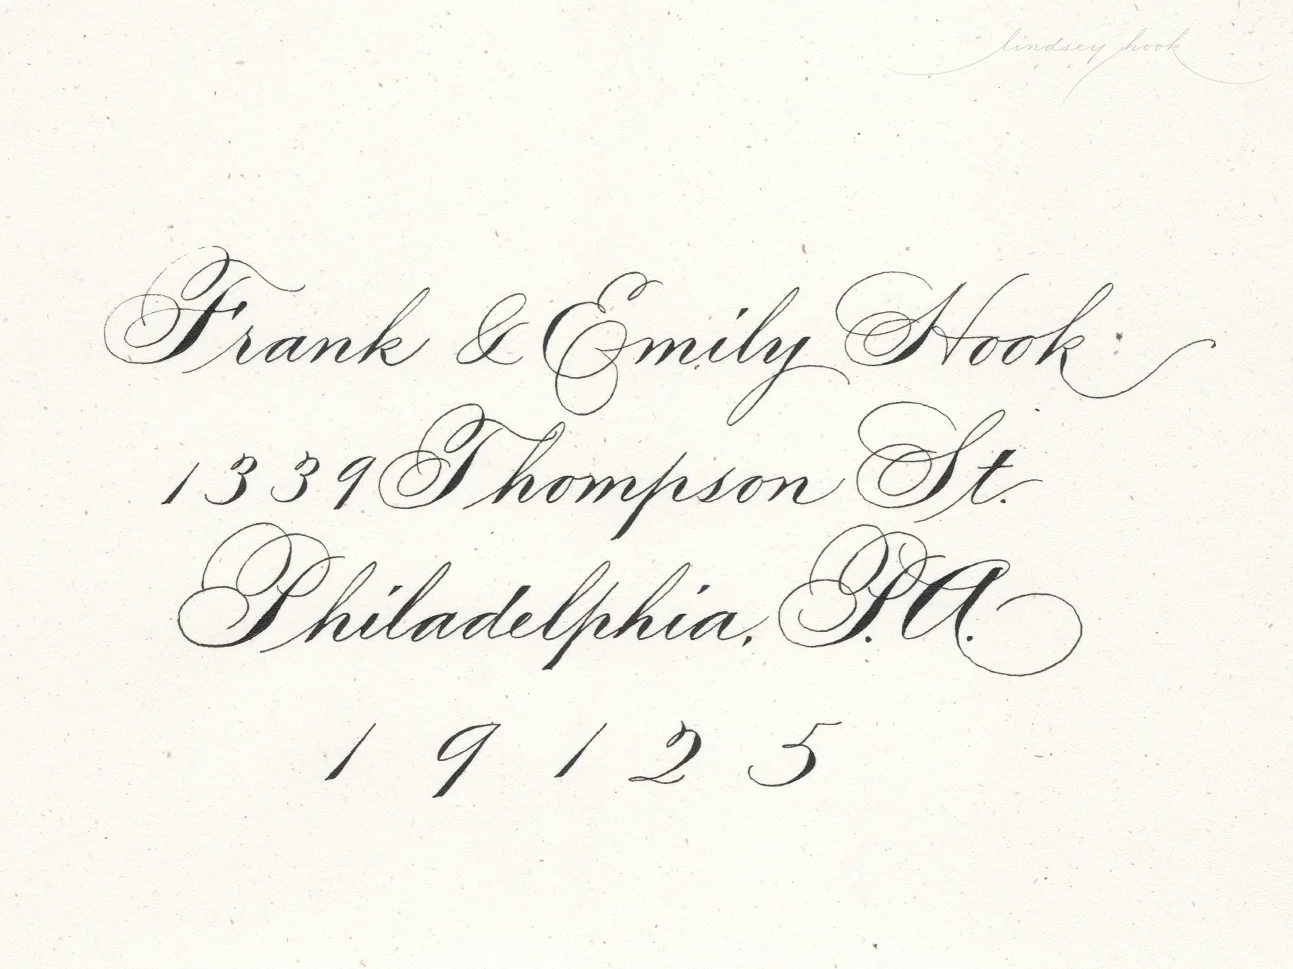 lindsey hook
Frank & Emily Hook
1339 Thompson St.
Philadelphia, P.A.
19125